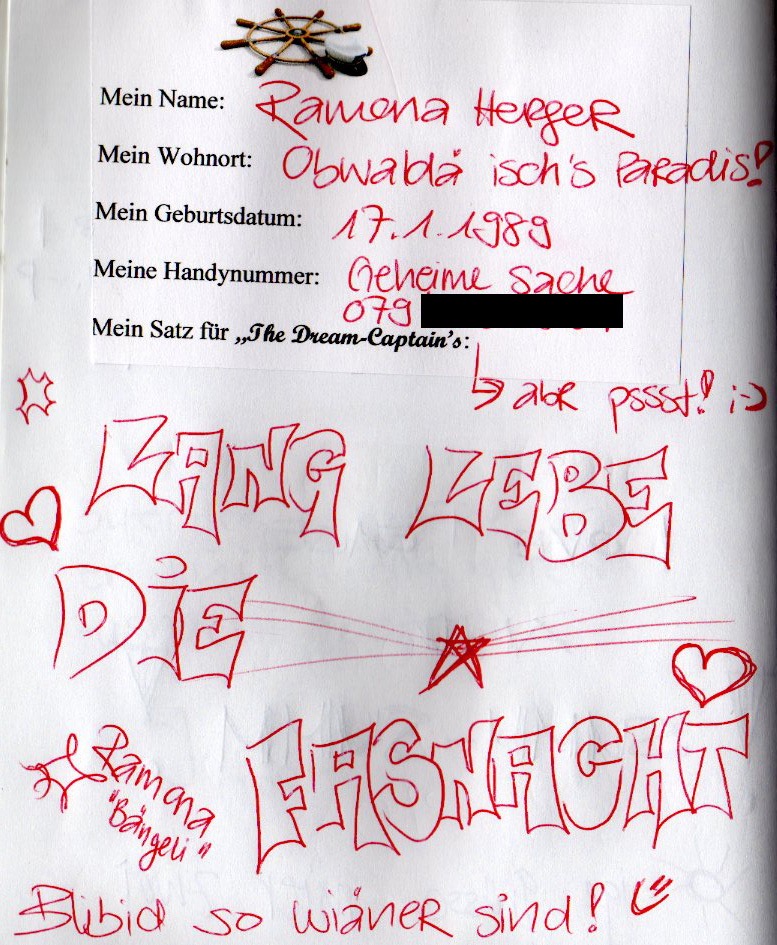 Mein Name: Ramona Herger
Mein Wohnort: Obwaldä isch's Paradis!
Mein Geburtsdatum: 17.1.1989
Meine Handynummer: Geheime Sache
079
Mein Satz für „The Dream-Captain's:
↳ abr pssst! ;-)
LANG LEBE
DIE
FASNACHT
Ramona
"Bängeli"
Blibid so wiäner sind!